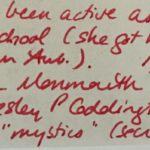 been active as
school (she got
in Aub.).
Monmouth
esley P Codding
"mystics" (sec